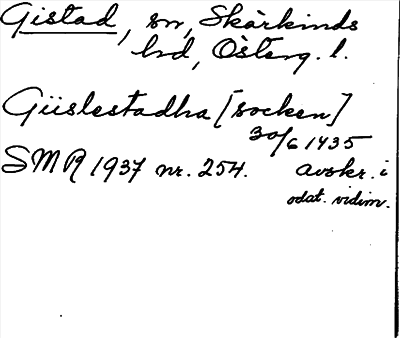 Gistad, sn, Skärkinds
hd, Österg. l.
Giislestadha [socken]
30/6 1435
SMR 1937 nr. 254. avskr. i
odat. vidim.